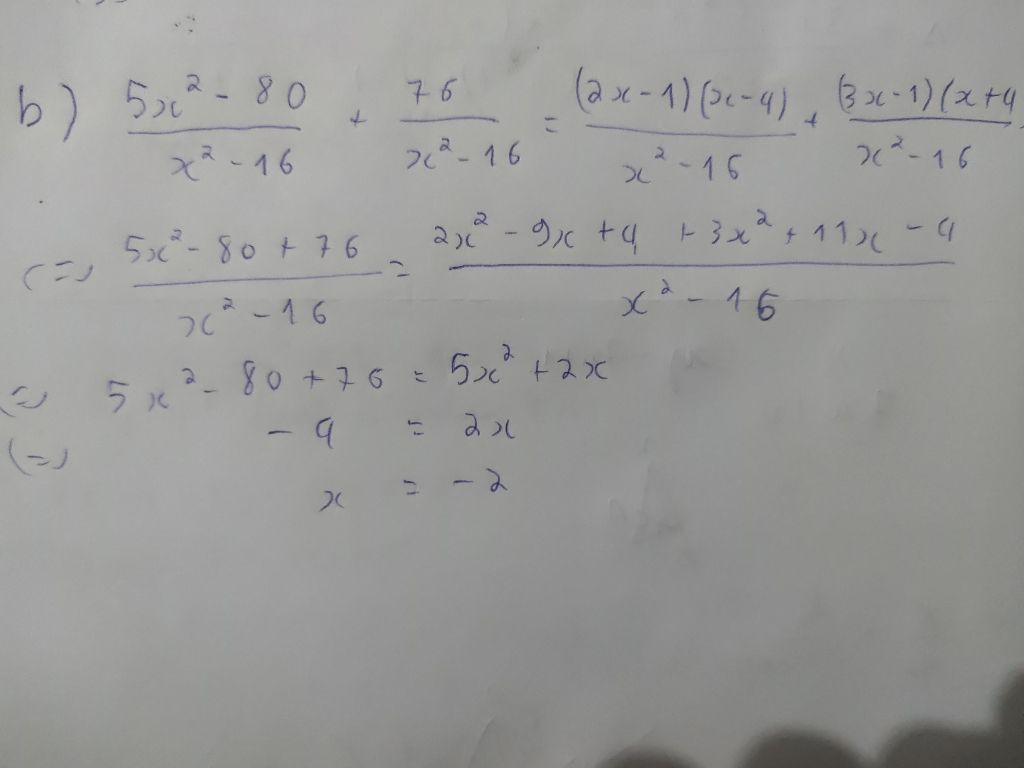 b) (5x² - 80)/(x² - 16) + 76/(x² - 16) = ((2x - 1)(x - 4))/(x² - 16) + ((3x - 1)(x + 4)/(x² - 16)
<=> (5x² - 80 + 76)/(x² - 16) = (2x² - 9x + 4 + 3x² + 11x - 4)/(x² - 16)
<=> 5x² - 80 + 76 = 5x² + 2x
<=> - 4 = 2x
x = - 2